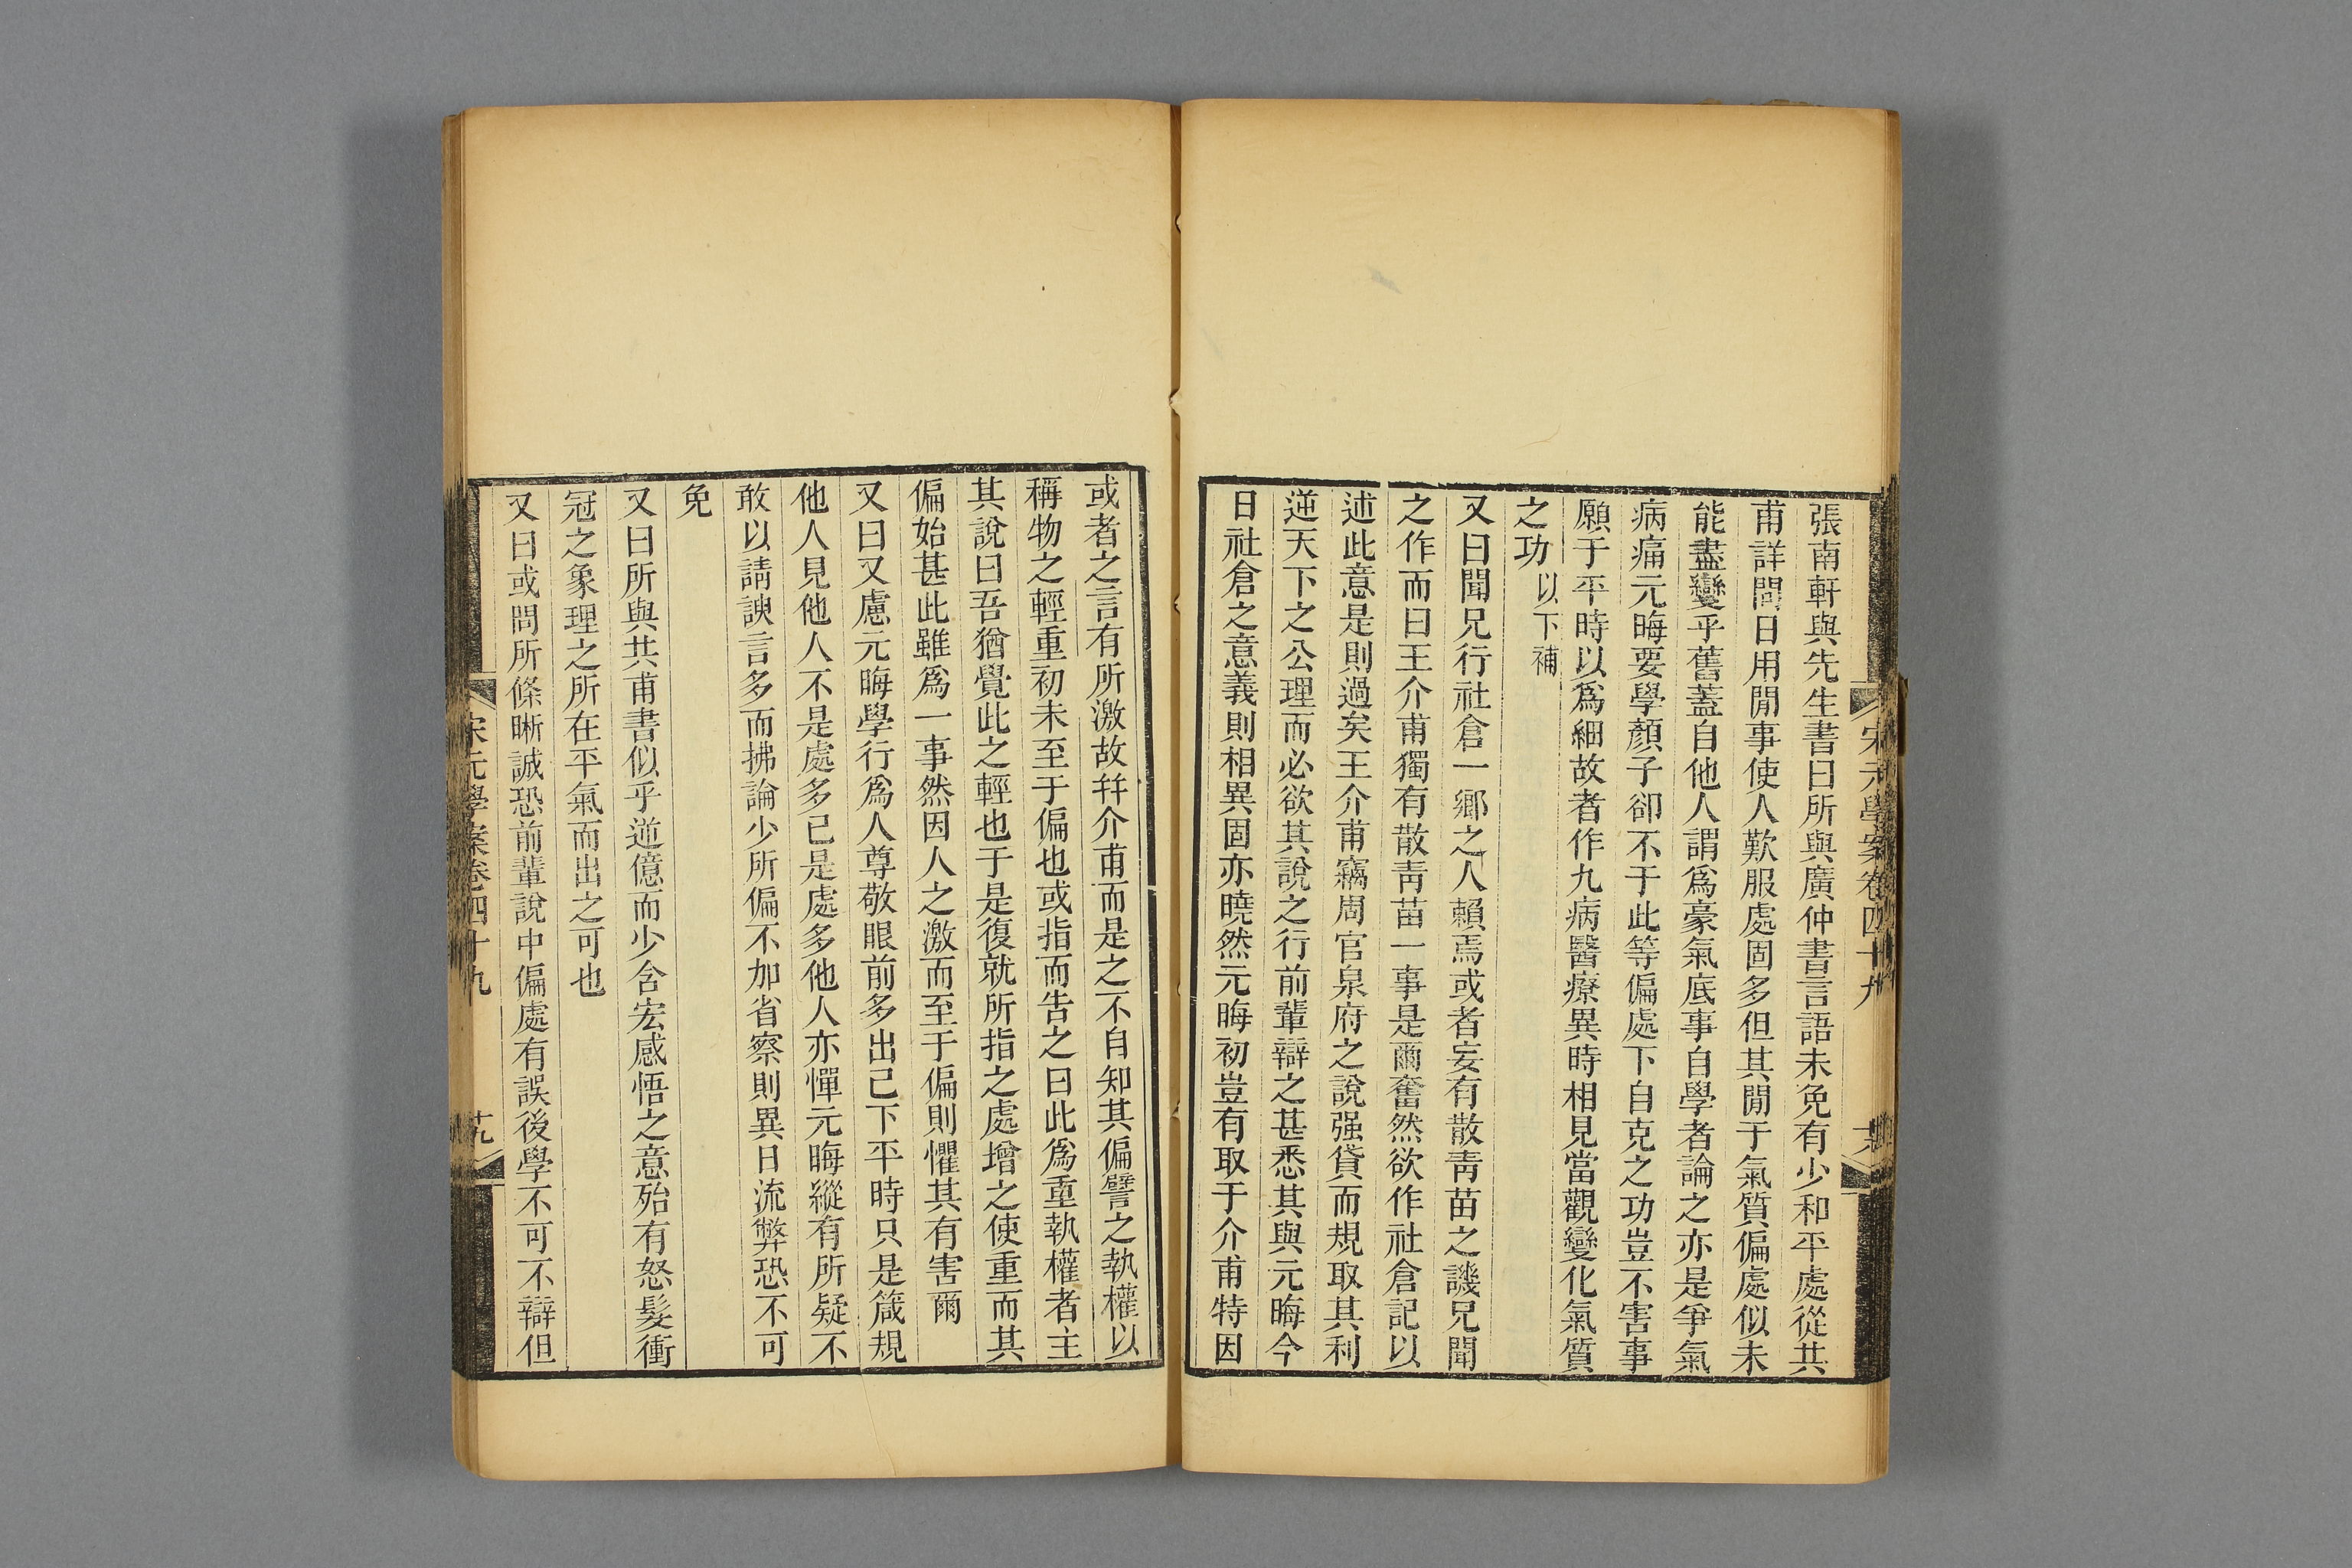 宋元學案卷四十九
張南軒與先生書曰所與廣仲書言語未免有少和平處從共
甫詳問日用閒事使人歎服處固多但其閒于氣質偏處似未
能盡變乎舊蓋自他人謂爲豪氣底事自學者論之亦是爭氣
病痛元晦要學顏子卻不于此等偏處下自克之功豈不害事
願于平時以爲細故者作九病醫療異時相見當觀變化氣質
之功以下補
又曰聞兄行社倉一鄉之人賴焉或者妄有散青苗之譏兄聞
之作而曰王介甫獨有散青苗一事是爾奮然欲作社倉記以
述此意是則過矣王介甫竊周官泉府之說强貸而規取其利
逆天下之公理而必欲其說之行前輩辯之甚悉其與元晦今
日社倉之意義則相異固亦曉然元晦初豈有取于介甫特因
或者之言有所激故幷介甫而是之不自知其偏譬之執權以
稱物之輕重初未至于偏也或指而告之曰此爲重執權者主
其說曰吾猶覺此之輕也于是復就所指之處增之使重而其
偏始甚此雖爲一事然因人之激而至于偏則懼其有害爾
又曰又慮元晦學行爲人尊敬眼前多出己下平時只是箴規
他人見他人不是處多已是處多他人亦憚元晦縱有所疑不
敢以請諛言多而拂論少所偏不加省察則異日流弊恐不可
免
又曰所與共甫書似乎逆億而少含宏感悟之意殆有怒髮衝
冠之象理之所在平氣而出之可也
又曰或問所條晰誠恐前輩說中偏處有誤後學不可不辯但
宋元學案卷四十九